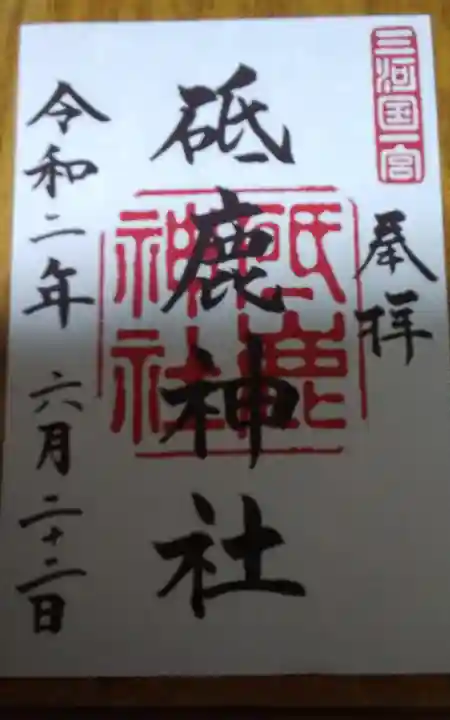 三河国一宮
奉拝
砥鹿神社
砥鹿神社
令和二年 六月二十二日